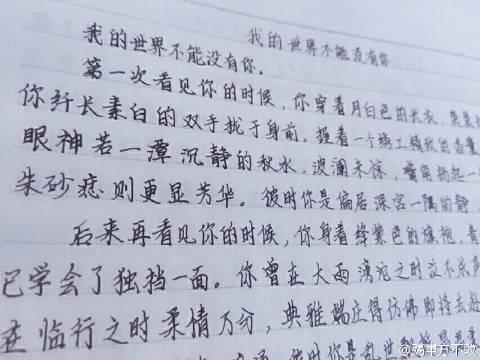 我的世界不能没有你
我的世界不能没有你。
第一次看见你的时候,你穿着月白色的长衣,
你纤长素白的双手拢于身前,握着一个精工精致的香囊
眼神若一潭沉静的秋水,波澜未惊,嘴角扬起一
朱砂痣则更显芳华。彼时你是偏居深宫一隅的静,
后来再看见你的时候,你身着绛紫色的旗袍,青
已学会了独挡一面。你曾在大雨滂沱之时
在临行之时柔情万分,典雅端庄得仿佛即将去赴